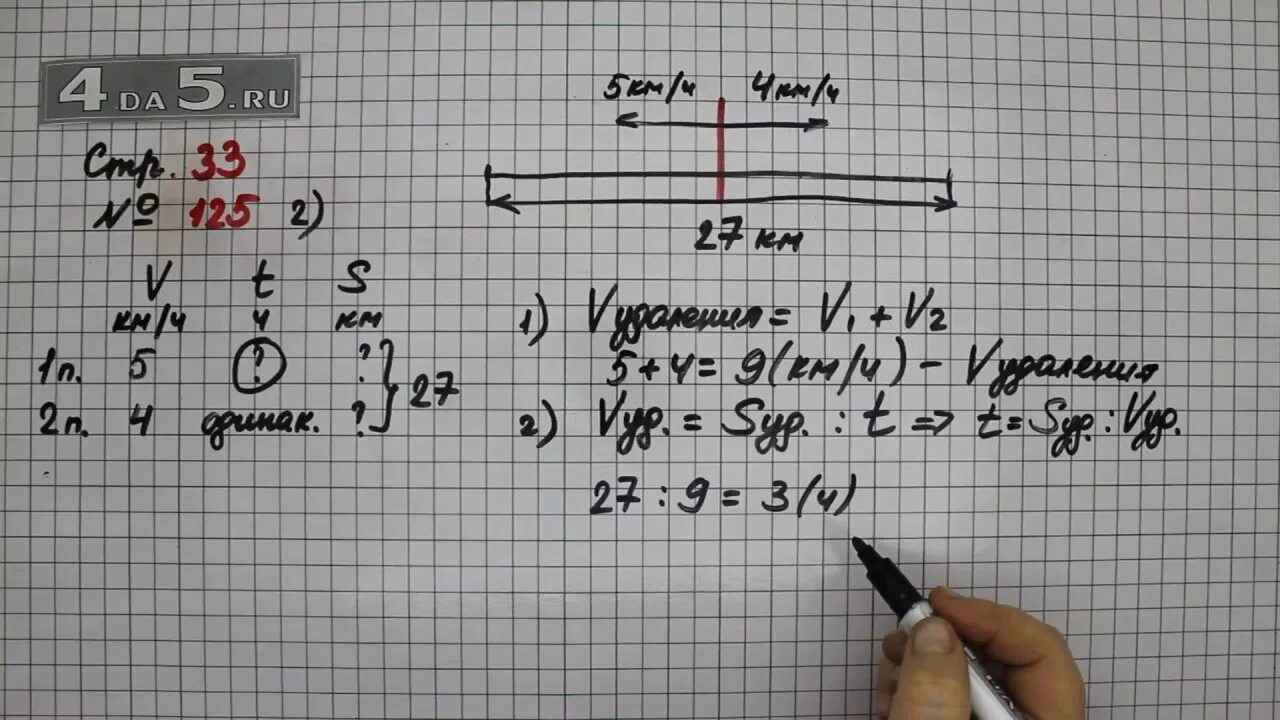 4 DA 5.RU
Стр. 33
№ 125 2)
5км/ч 4км/ч
27 км
V t S
км/ч ч км
1п. 5 ? ? } 27
2п. 4 одинак. ?
1) Vудаления = V₁ + V₂
5 + 4 = 9 (км/ч) - Vудаления
2) Vуд. = Sуд. : t => t = Sуд. : Vуд.
27 : 9 = 3 (ч)